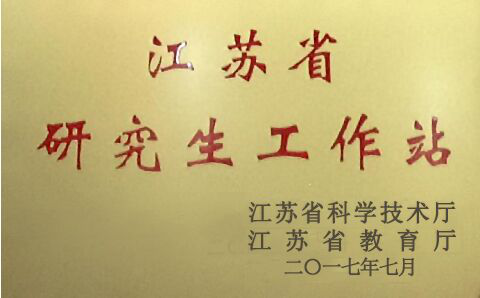 江苏省
研究生工作站
江苏省科学技术厅
江苏省教育厅
二〇一七年七月